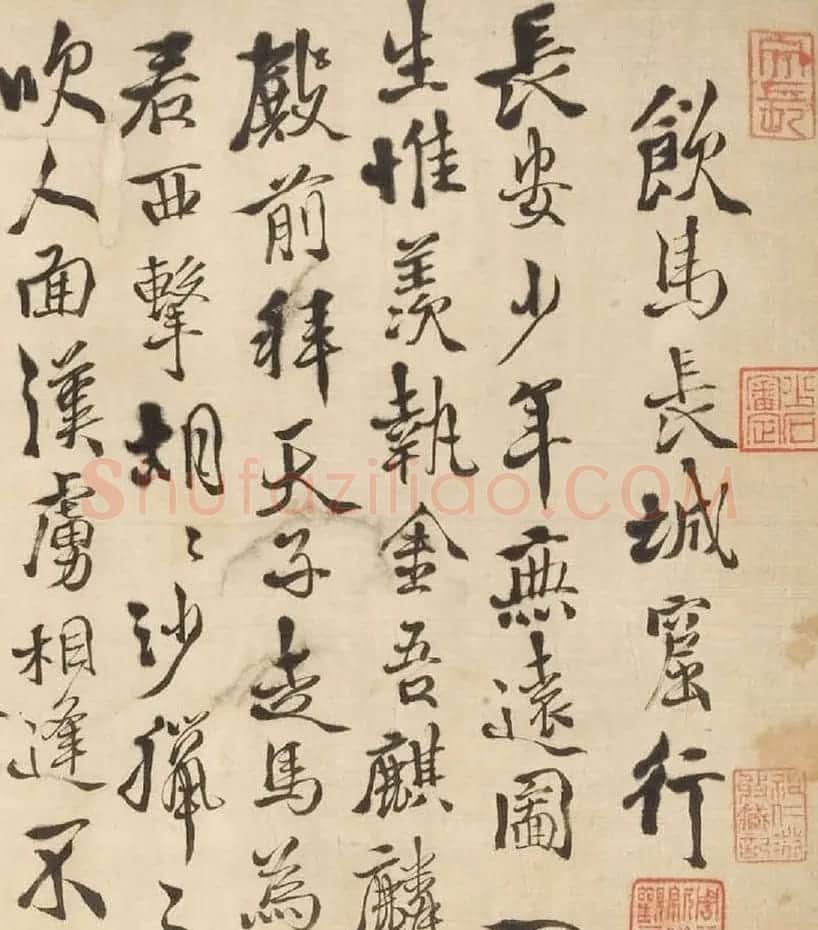 飲馬長城窟行
長安少年無遠圖一
生惟羨執金吾麒麟
殿前拜天子走馬為
君西擊胡〻沙獵〻
吹人面漢虜相逢不
Shufaziliao.COM